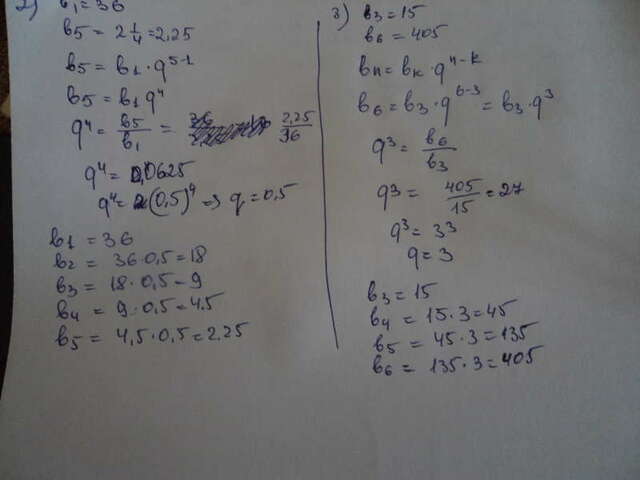 2) в₁=36
в₅ = 2 1/4 = 2,25
в₅ = в₁ · q⁵⁻¹
в₅ = в₁ q⁴
q⁴ = в₅/в₁ = 2,25/36
q⁴ = 0,0625
q⁴ = (0,5)⁴ => q = 0,5
в₁ = 36
в₂ = 36·0,5 = 18
в₃ = 18·0,5 = 9
в₄ = 9·0,5 = 4,5
в₅ = 4,5·0,5 = 2,25
3) в₃ = 15
в₆ = 405
вₙ = вₖ · qⁿ⁻ᵏ
в₆ = в₃ · q⁶⁻³ = в₃ · q³
q³ = в₆/в₃
q³ = 405/15 = 27
q³ = 3³
q = 3
в₃ = 15
в₄ = 15·3 = 45
в₅ = 45·3 = 135
в₆ = 135·3 = 405